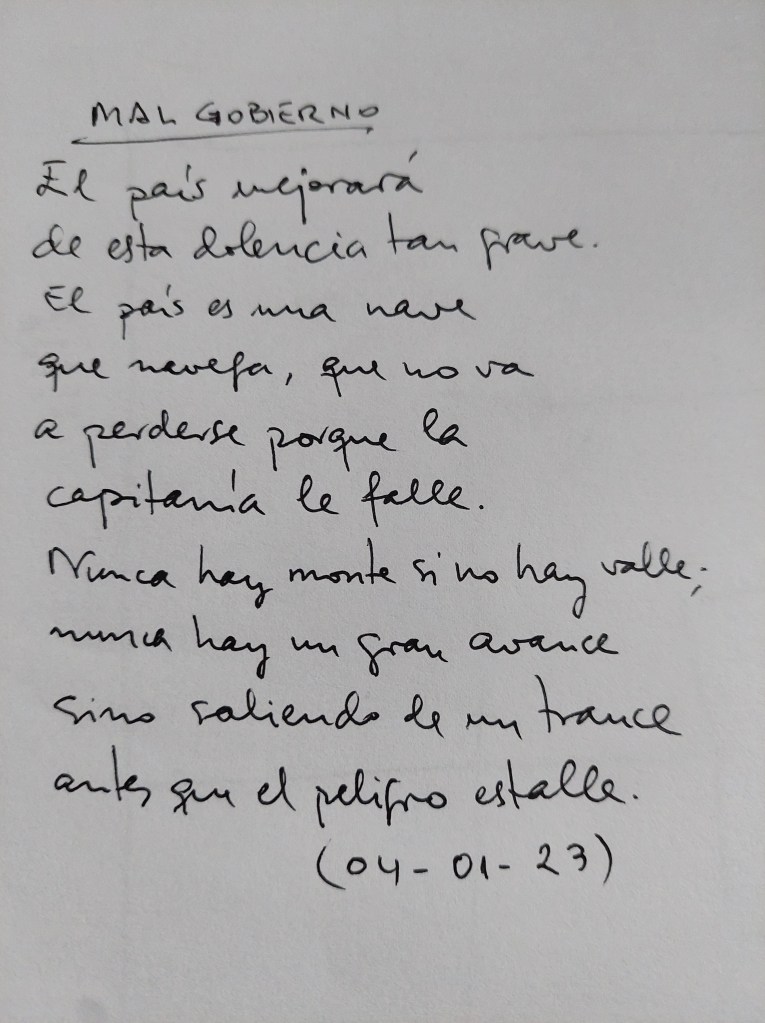 MAL GOBIERNO
El país mejorará
de esta dolencia tan grave.
El país es una nave
que navega, que no va
a perderse porque la
capitanía le falle.
Nunca hay monte si no hay valle;
nunca hay un gran avance
sino saliendo de un trance
antes que el peligro estalle.
(04-01-23)